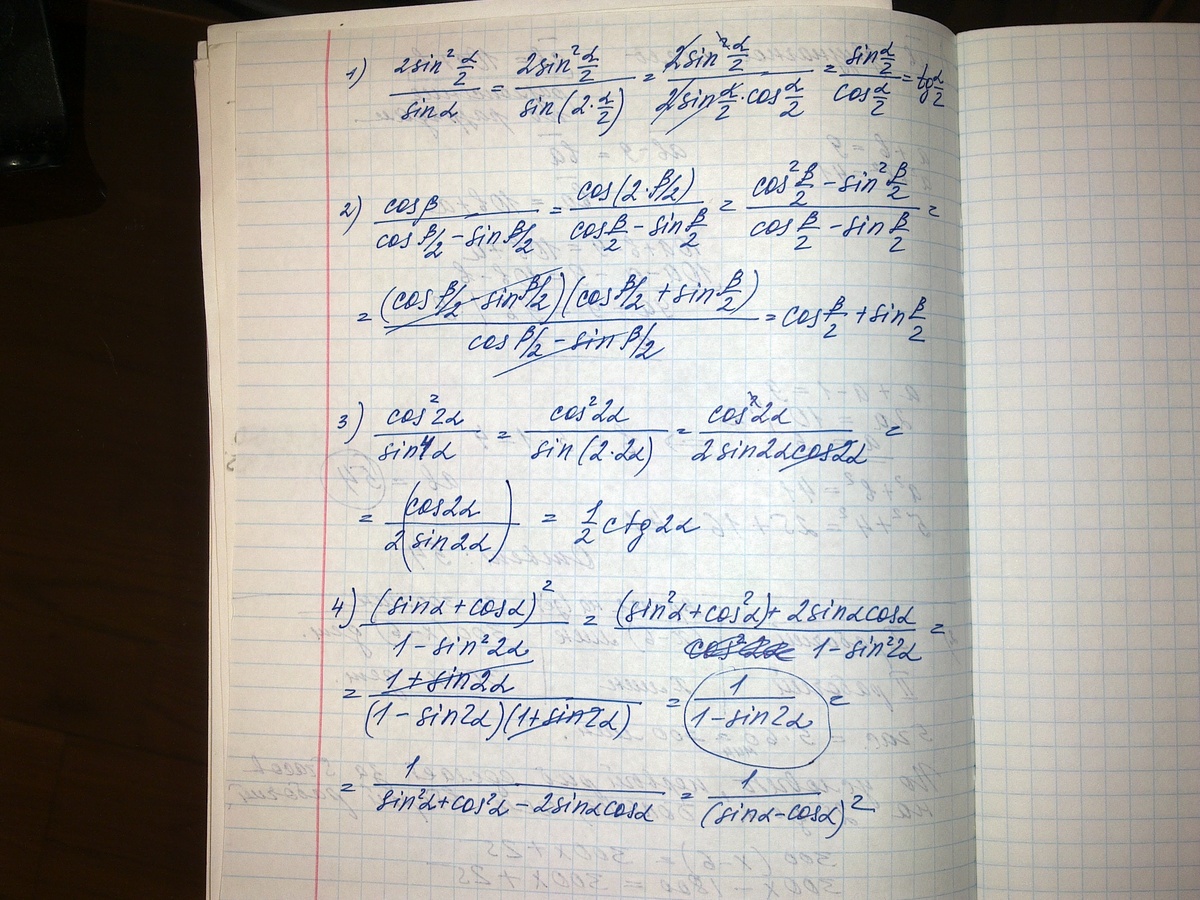 1) 2sin² α/2 / sinα = 2sin² α/2 / sin(2·α/2) = 2sin² α/2 / 2sin α/2 · cos α/2 = sin α/2 / cos α/2 = tg α/2
2) cosβ / cos β/2 - sin β/2 = cos(2·β/2) / cos β/2 - sin β/2 = cos² β/2 - sin² β/2 / cos β/2 - sin β/2 =
= (cos β/2 - sin β/2)(cos β/2 + sin β/2) / cos β/2 - sin β/2 = cos β/2 + sin β/2
3) cos²2α / sin4α = cos²2α / sin(2·2α) = cos²2α / 2sin2αcos2α =
= (cos2α / 2 sin2α) = 1/2 ctg2α
4) (sinα + cosα)² / 1 - sin²2α = (sin²α + cos²α) + 2sinαcosα / cos²2α 1 - sin²2α =
= 1 + sin2α / (1 - sin2α)(1 + sin2α) = 1 / 1 - sin2α =
= 1 / sin²α + cos²α - 2sinαcosα = 1 / (sinα - cosα)²